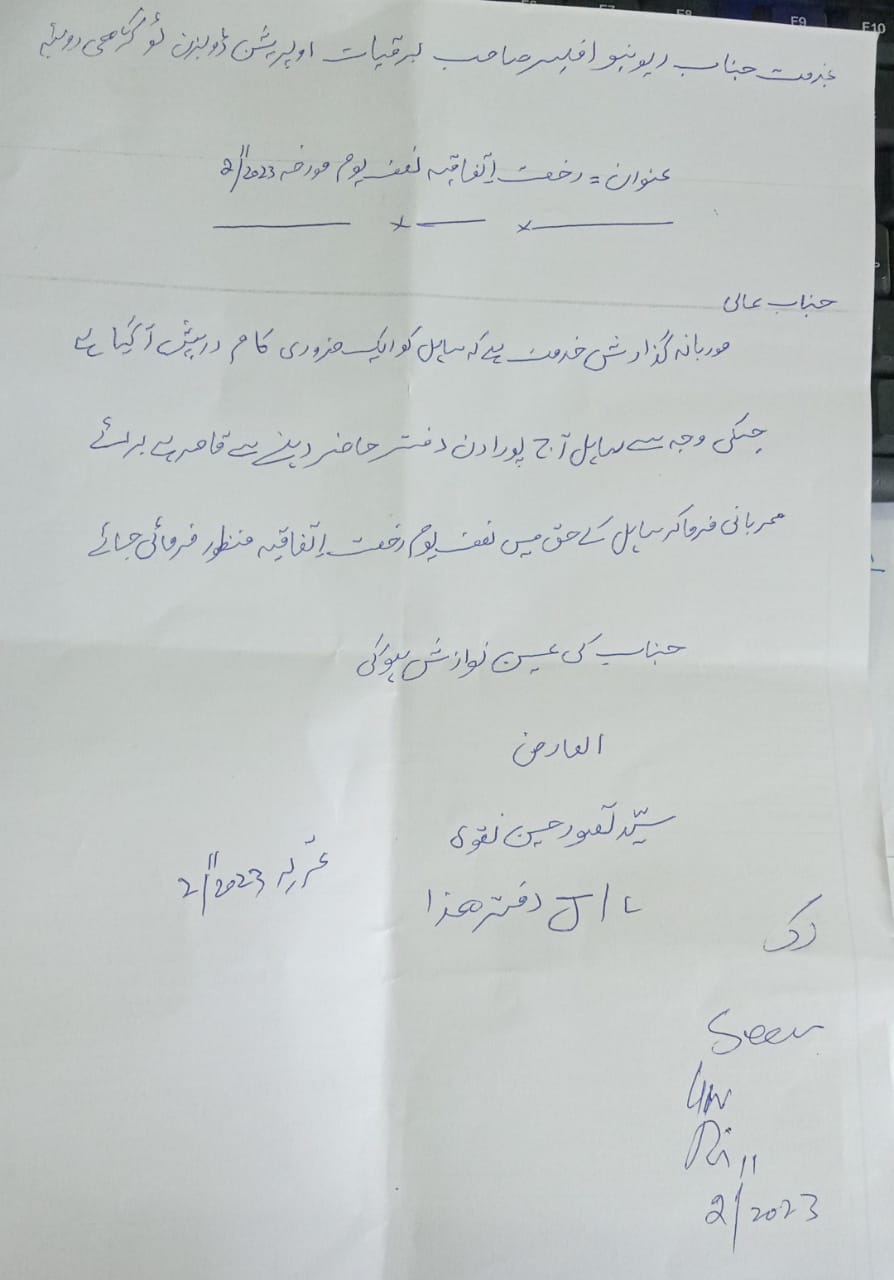 بخدمت جناب ریونیو افیسر صاحب برقیات اوپریشن ڈویژن نو گڑھی دوپٹہ
عنوان = رخصت اتفاقیہ نصف یوم مورخہ 2/11/2023
جناب عالی
مودبانہ گذارش خدمت ہے کہ سایل کو ایک ضروری کام درپیش آ گیا ہے
جسکی وجہ سے سایل آج پورا دن دفتر حاضر دینے سے قاصر ہے برائے
مہربانی فرما کر سایل کے حق میں نصف یوم رخصت اتفاقیہ منظور فرمائی جائے
جناب کی عین نوازش ہوگی
العارض
سیّد تصور حسین نقوی
دفتر ھذا
2/11/2023
Seen
11
2/2023
F9
F10